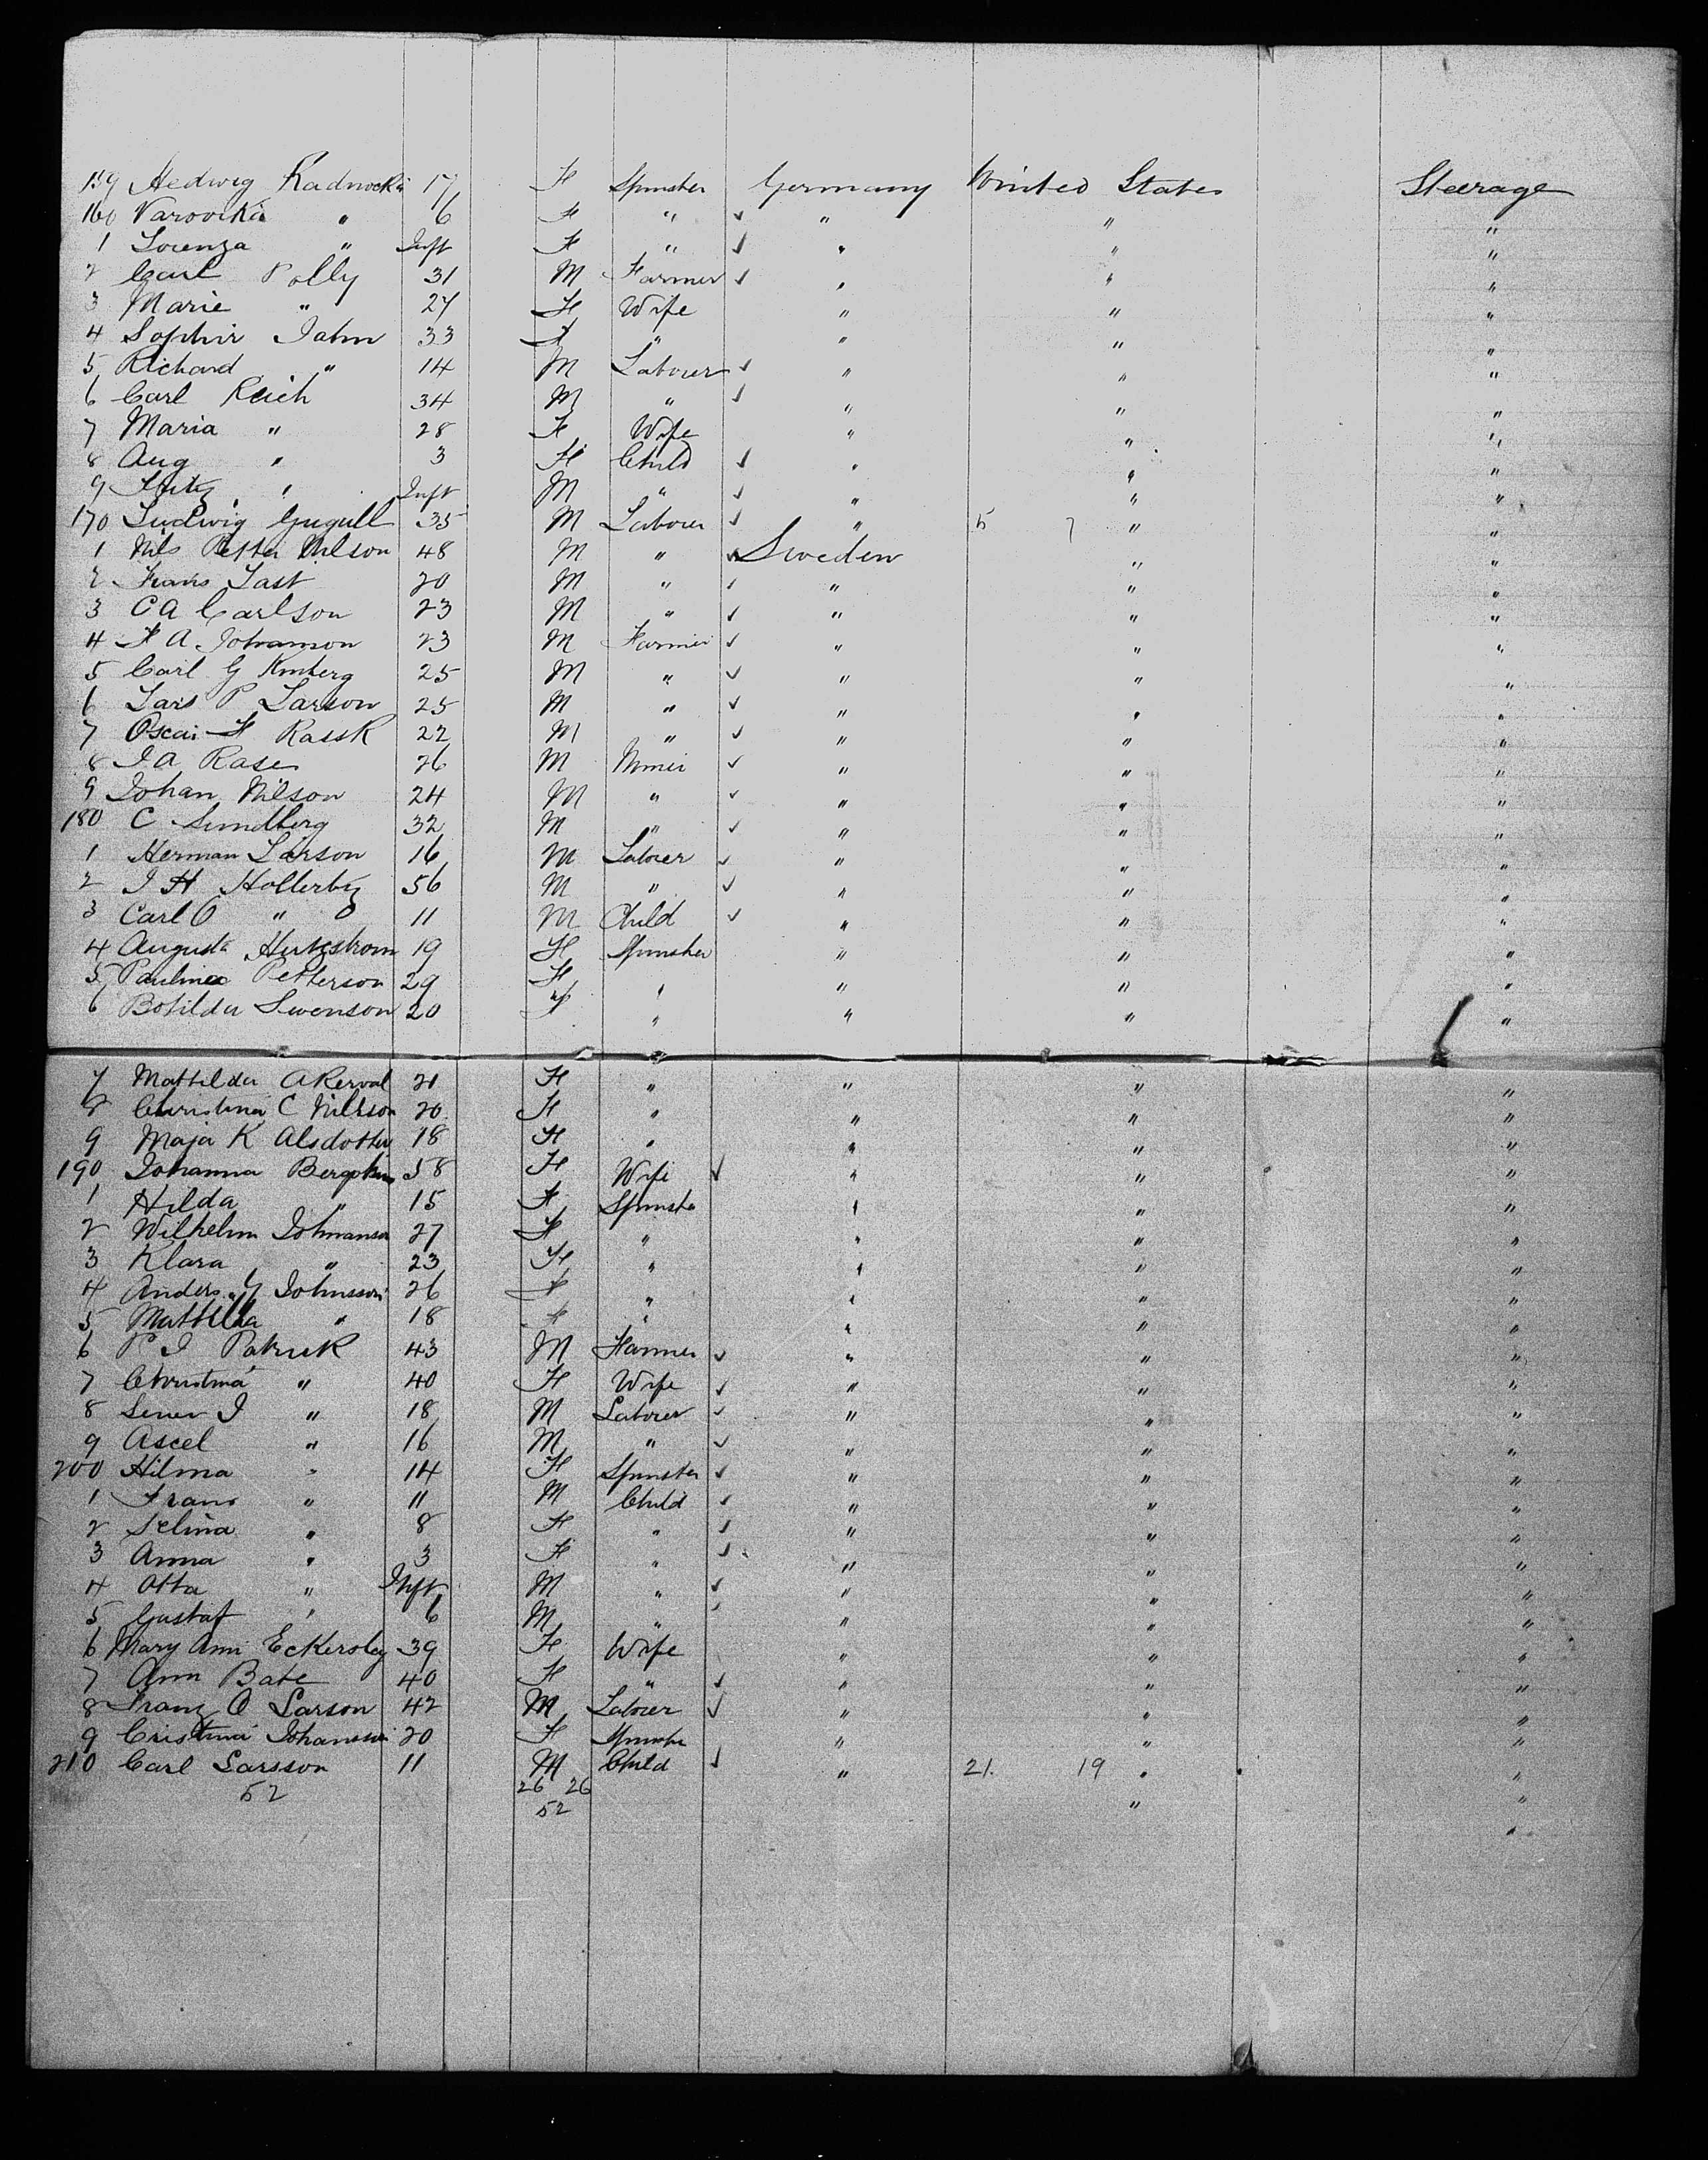 159 Hedwig Radnocka 17 F Spinster Germany United States Steerage
160 Varovika " 6 F " ✓ " " "
1 Lorenza " Inft F " ✓ " " "
2 Carl Polly 31 M Farmer ✓ " " "
3 Marie " 27 F Wife " " "
4 Sophir Jahn 33 F " " " "
5 Richard " 14 M Labourer ✓ " " "
6 Carl Reich 34 M " ✓ " " "
7 Maria " 28 F Wife " " "
8 Aug " 3 F Child ✓ " " "
9 Fritz " Inft M " ✓ " " "
170 Ludwig Gugull 35 M Laborer ✓ " 5 7 " "
1 Nils Petter Nilson 48 M " ✓ Sweden " "
2 Frans Last 20 M " ✓ " " "
3 C A Carlson 23 M " ✓ " " "
4 F A Johanson 23 M Farmer ✓ " " "
5 Carl G Kmberg 25 M " ✓ " " "
6 Lars P Larson 25 M " ✓ " " "
7 Oscar F Rassk 22 M " ✓ " " "
8 J A Rase 26 M Miner ✓ " " "
9 Johan Nilson 24 M " ✓ " " "
180 C Sundberg 32 M " ✓ " " "
1 Herman Larson 16 M Laborer ✓ " " "
2 J H Hollerby 56 M " ✓ " " "
3 Carl O " 11 M Child ✓ " " "
4 Augusta Hertzstrom 19 F Spinster " " "
5 Paulinea Petterson 29 F " " " "
6 Botilda Swenson 20 F " " " "
7 Mattilda Akerval 21 F " " " "
8 Christina C Nillson 20 F " " " "
9 Maja K Alsdotter 18 F " " " "
190 Johanna 58 F Wife ✓ " " "
1 Hilda " 15 F Spinster " " "
2 Wilhelm Johmanson 27 F " " " "
3 Klara " 23 F " " " "
4 Anders G Johnsson 26 F " " " "
5 Mattilda " 18 F " " " "
6 P J Patrick 43 M Farmer ✓ " " "
7 Christina " 40 F Wife ✓ " " "
8 Sener J " 18 M Laborer ✓ " " "
9 Ascel " 16 M " ✓ " " "
200 Hilma " 14 F Spinster ✓ " " "
1 Frans " 11 M Child ✓ " " "
2 Selina " 8 F " ✓ " " "
3 Anna " 3 F " ✓ " " "
4 Otta " Inft M " ✓ " " "
5 Gustaf " 6 M " ✓ " " "
6 Mary Ann Eckersley 39 F Wife " " "
7 Ann Bate 40 F " ✓ " " "
8 Franz O Larson 42 M Laborer ✓ " " "
9 Cristina Johansson 20 F Spinster " " "
210 Carl Larsson 11 M Child ✓ " 21. 19 " "
52 26 26 " "
52 "